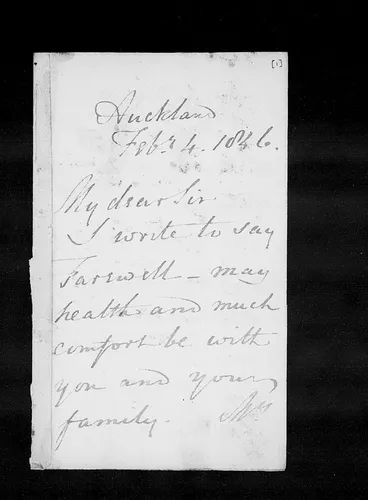 [1]
Auckland
Feb.y 4. 1846.
My dear Sir
I write to say
Farewell - may
health and much
comfort be with
you and your
family. Mrs